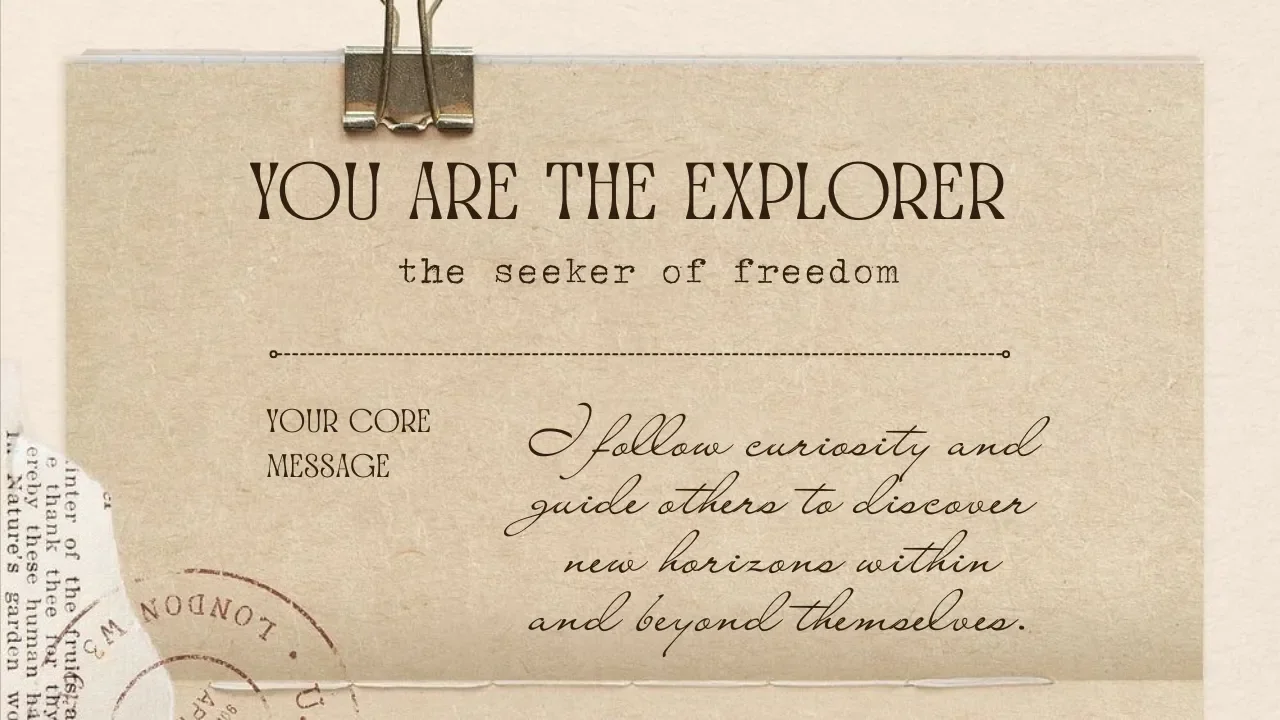 YOU ARE THE EXPLORER
the seeker of freedom
YOUR CORE
MESSAGE
I follow curiosity and
guide others to discover
new horizons within
and beyond themselves.
inter of the fruits
e thank thee for thy
ereby these human
Nature's garden
LONDON W3
U.